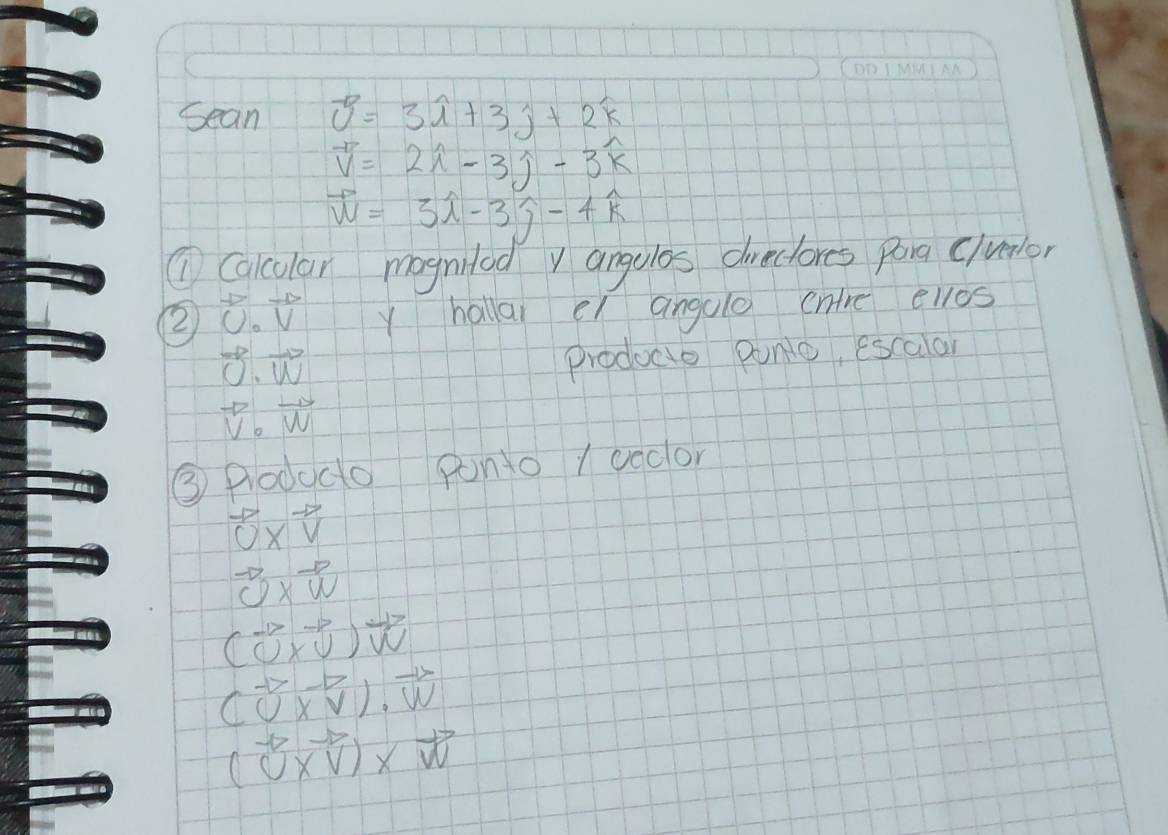 DD | MM | AA
Sean U⃗ = 3î + 3ĵ + 2k̂
V⃗ = 2î - 3ĵ - 3k̂
W⃗ = 3î - 3ĵ - 4k̂
① Calcular magnitod y angulos directores para c/vector
② U⃗ . V⃗ y hallar el angulo entre ellos
U⃗ . W⃗ producto punto, escalar
V⃗ . W⃗
③ Producto punto / vector
U⃗ x V⃗
U⃗ x W⃗
(U⃗ x V⃗) W⃗
(U⃗ x V⃗) . W⃗
(U⃗ x V⃗) x W⃗